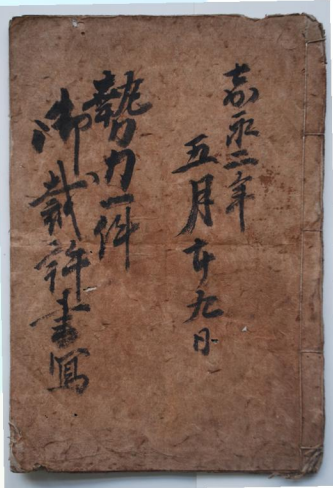 嘉永二年
五月廿九日
勢力一件
御裁許書寫